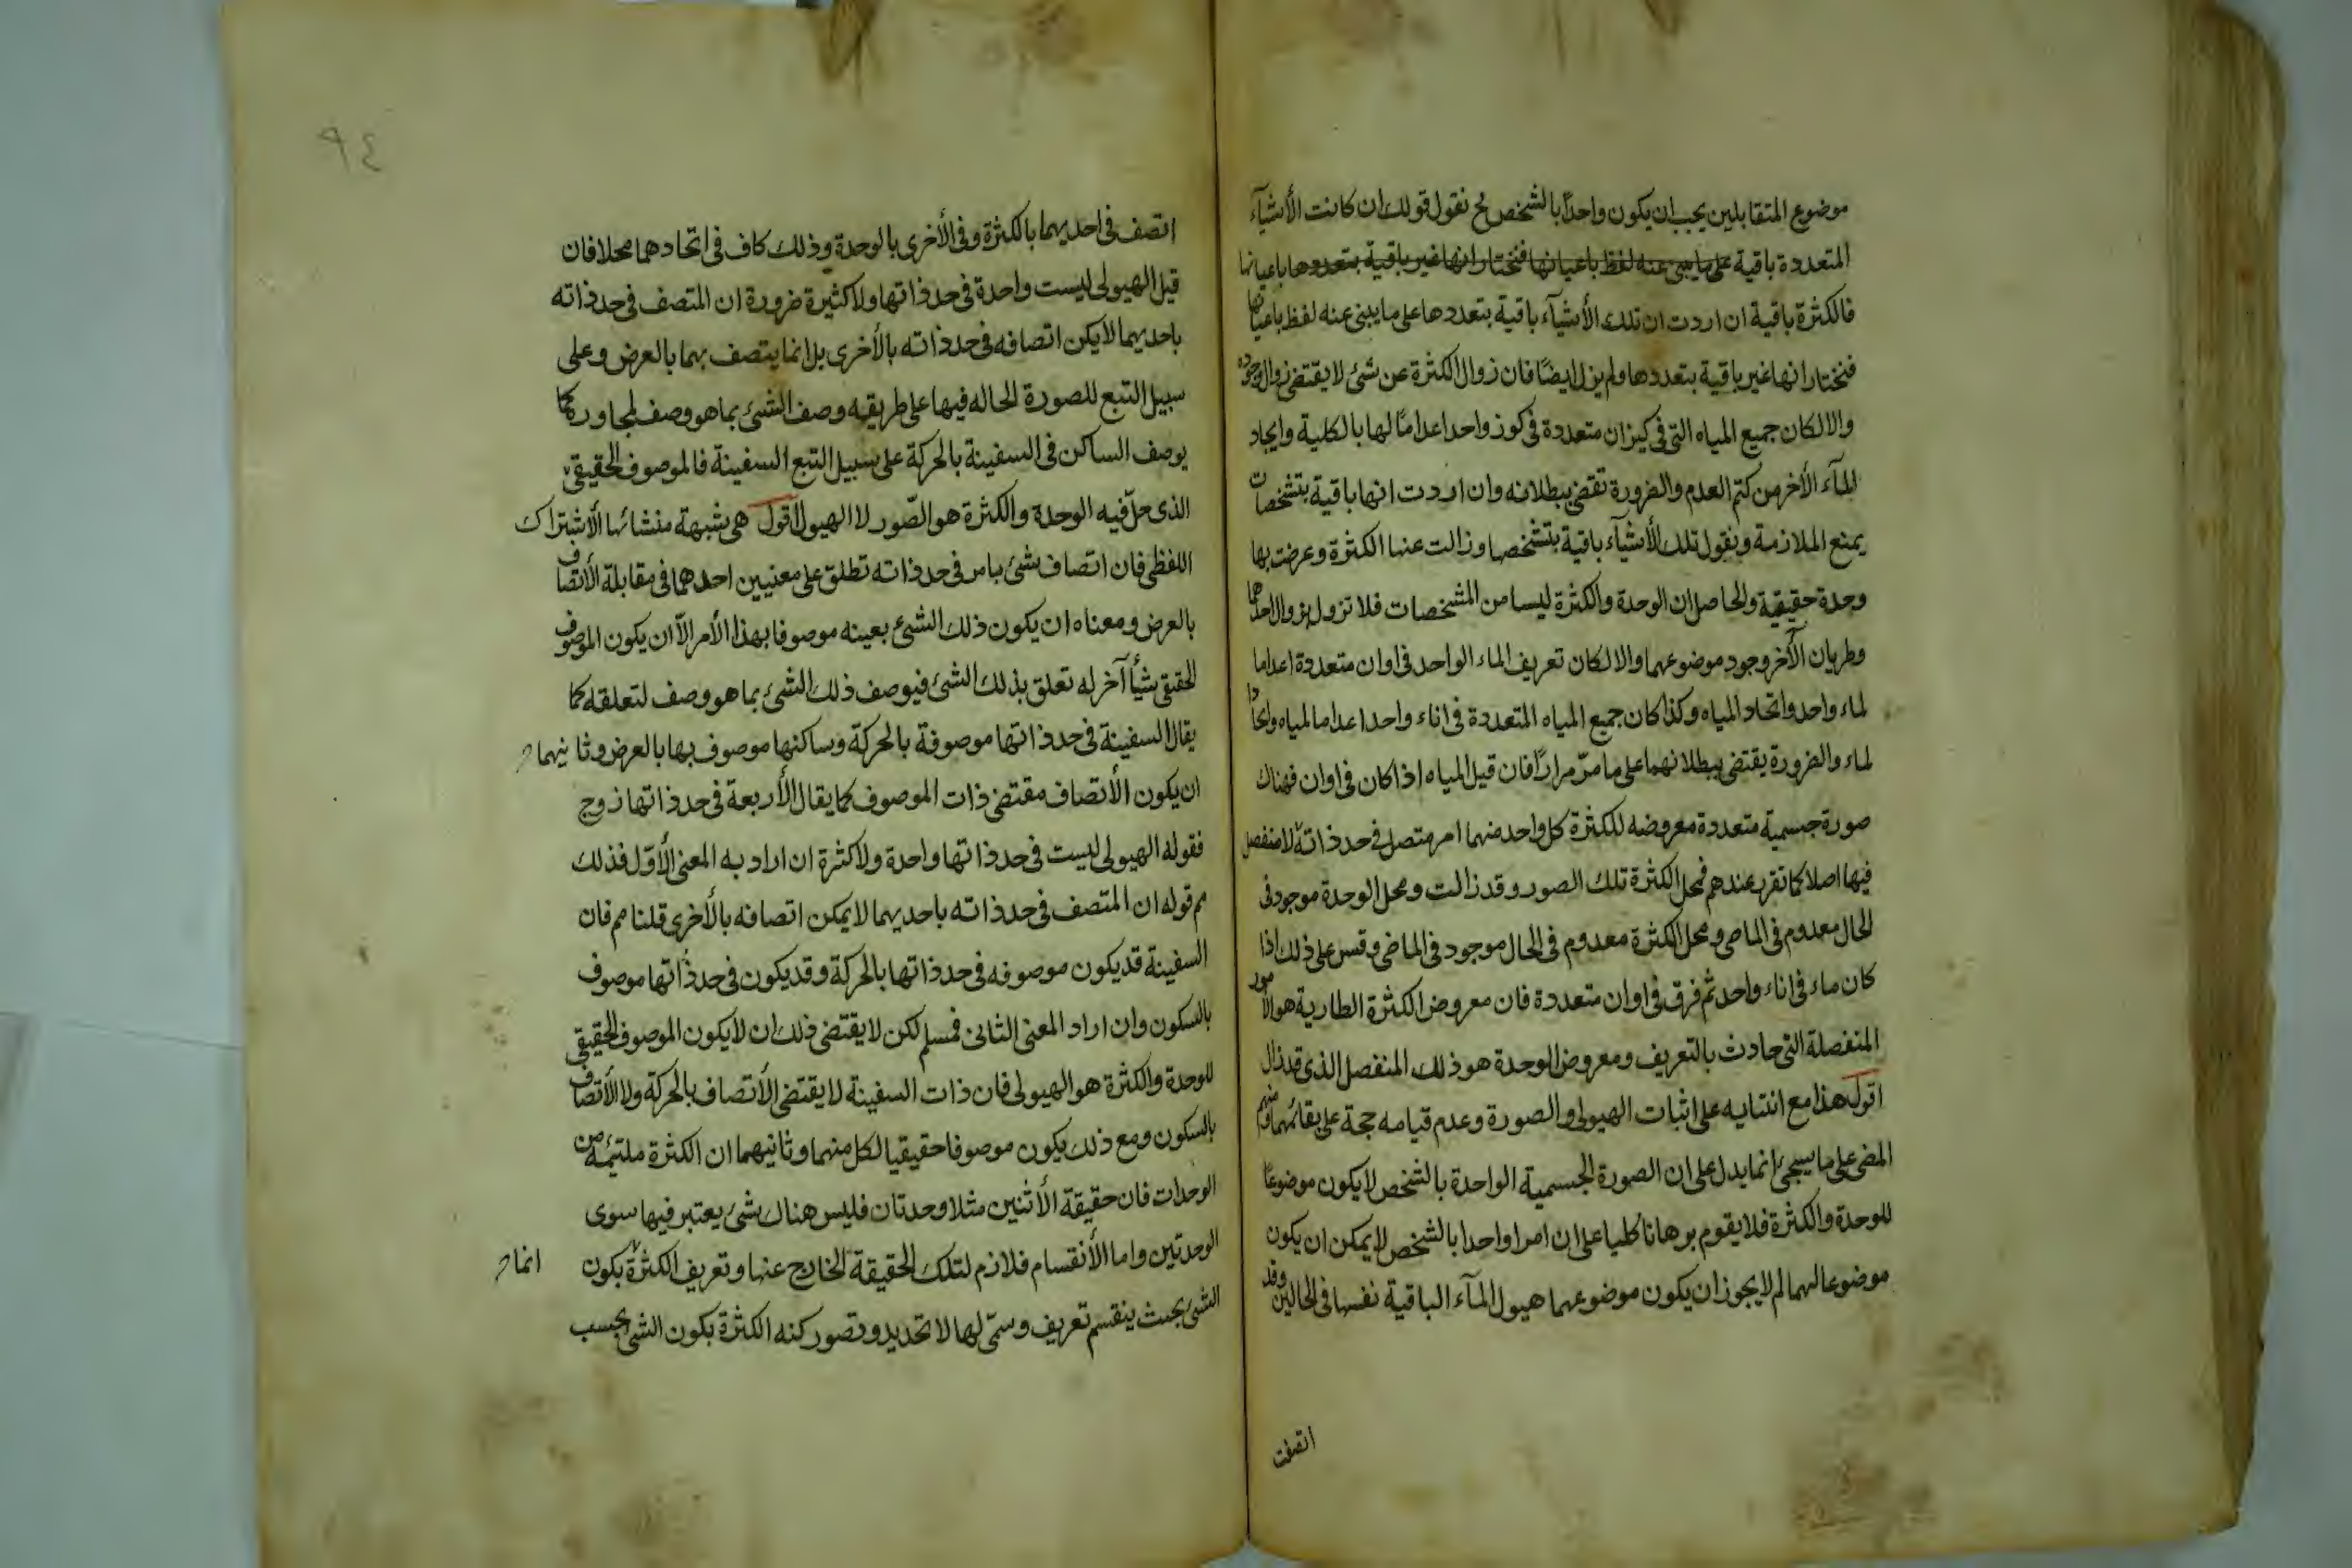 موضوع المتقابلين يجب ان يكون واحدًا بالشخص ح نقول قولك ان كانت الأشيآء
المتعددة باقية على ما يبنى عنه لفظ باعيانها فنختار انها غير باقية بتعددها باعيانها
فالكثرة باقية ان اردت ان تلك الأشيآء باقية بتعددها على ما يبنى عنه لفظ باعيانها
فنختار انها غير باقية بتعددها ولم يزل ايضًا فان زوال الكثرة عن شئ لا يقتضى زوال وجوده
والا لكان جميع المياه التى فى كيزان متعددة فى كوز واحد اعدامًا لها بالكلية وايجاد
للمآء الأخر من كتم العدم والضرورة تقضى ببطلانه وان اردت انها باقية بتشخصات
يمنع الملازمة ونقول تلك الأشيآء باقية بتشخصها وزالت عنها الكثرة وعرضت بها
وحدة حقيقية والحاصل ان الوحدة والكثرة ليسا من المشخصات فلا تزول بزوال احدهما
وطريان الآخر وجود موضوعهما والا لكان تعريف الماء الواحد فى اوان متعددة اعداما
لماء واحد واتحاد المياه وكذا كان جميع المياه المتعددة فى اناء واحد اعداما لمياه وايجادا
لماء والضرورة يقتضى ببطلانهما على ما مرّ مرارًا فان قيل المياه اذا كان فى اوان فهناك
صورة جسمية متعددة معروضه للكثرة كل واحد منهما امر متصل فى حد ذاته لا منفصل
فيها اصلا كما تقرر عندهم فمحل الكثرة تلك الصور وقد زالت ومحل الوحدة موجود فى
الحال معدوم فى الماضى ومحل الكثرة معدوم فى الحال موجود فى الماضى وقس على ذلك اذا
كان ماء فى اناء واحد ثم فرق فى اوان متعددة فان معروض الكثرة الطارية هو الامور
المنفصلة التى حادث بالتعريف ومعروض الوحدة هو ذلك المنفصل الذى قد زال
اقول هذا مع ابتنايه على اثبات الهيولى والصورة وعدم قيامه حجة على بقائهما
المضى على ما سيجئ انما يدل على ان الصورة الجسمية الواحدة بالشخص لا يكون موضوعًا
للوحدة والكثرة فلا يقوم برهانا كليا على ان امرا واحدا بالشخص لا يمكن ان يكون
موضوعا لهما لم لا يجوز ان يكون موضوعهما هيولى المآء الباقية نفسها فى الحالين وقد
اتصفت
٩٤
اتصف فى احديهما بالكثرة وفى الأخرى بالوحدة وذلك كاف فى اتحادهما محلا فان
قيل الهيولى ليست واحدة فى حد ذاتها ولا كثيرة ضرورة ان المتصف فى حد ذاته
باحديهما لا يكن اتصافه فى حد ذاته بالأخرى بل انما يتصف بهما بالعرض وعلى
سبيل التبع للصورة الحاله فيها على طريقه وصف الشئ بما هو وصف لمجاوره كما
يوصف الساكن فى السفينة بالحركة على سبيل التبع السفينة فالموصوف الحقيقى
الذى حلّ فيه الوحدة والكثرة هو الصّور لا الهيولى اقول هى شبهة منشائها الأشتراك
اللفظى فان اتصاف شئ بامر فى حد ذاته تطلق على معنيين احدهما فى مقابلة الأتصاف
بالعرض ومعناه ان يكون ذلك الشئ بعينه موصوفا بهذا الأمر الاّ ان يكون الموصوف
الحقيقى شيأ آخر له تعلق بذلك الشئ فيوصف ذلك الشئ بما هو وصف لتعلقه كما
يقال السفينة فى حد ذاتها موصوفة بالحركة وساكنها موصوف بها بالعرض وثانيهما
ان يكون الأتصاف مقتضى ذات الموصوف كما يقال الأربعة فى حد ذاتها زوج
فقوله الهيولى ليست فى حد ذاتها واحدة ولا كثرة ان اراد به المعنى الأوّل فذلك
مم قوله ان المتصف فى حد ذاته باحديهما لا يمكن اتصافه بالأخرى قلنا مم فان
السفينة قد يكون موصوفه فى حد ذاتها بالحركة وقد يكون فى حد ذاتها موصوف
بالسكون وان اراد المعنى الثانى فمسلم لكن لا يقتضى ذلك ان لا يكون الموصوف الحقيقى
للوحدة والكثرة هو الهيولى فان ذات السفينة لا يقتضى الأتصاف بالحركة ولا الأتصاف
بالسكون ومع ذلك يكون موصوفا حقيقيا لكل منهما وثانيهما ان الكثرة ملتئمة من
الوحدات فان حقيقة الأثنين مثلا وحدتان فليس هناك شئ يعتبر فيها سوى
الوحدتين واما الأنقسام فلازم لتلك الحقيقة الخارج عنها وتعريف الكثرة بكون
انما
الشئ بحيث ينقسم تعريف رسمىّ لها لا تحديد وتصور كنه الكثرة بكون الشئ بحسب